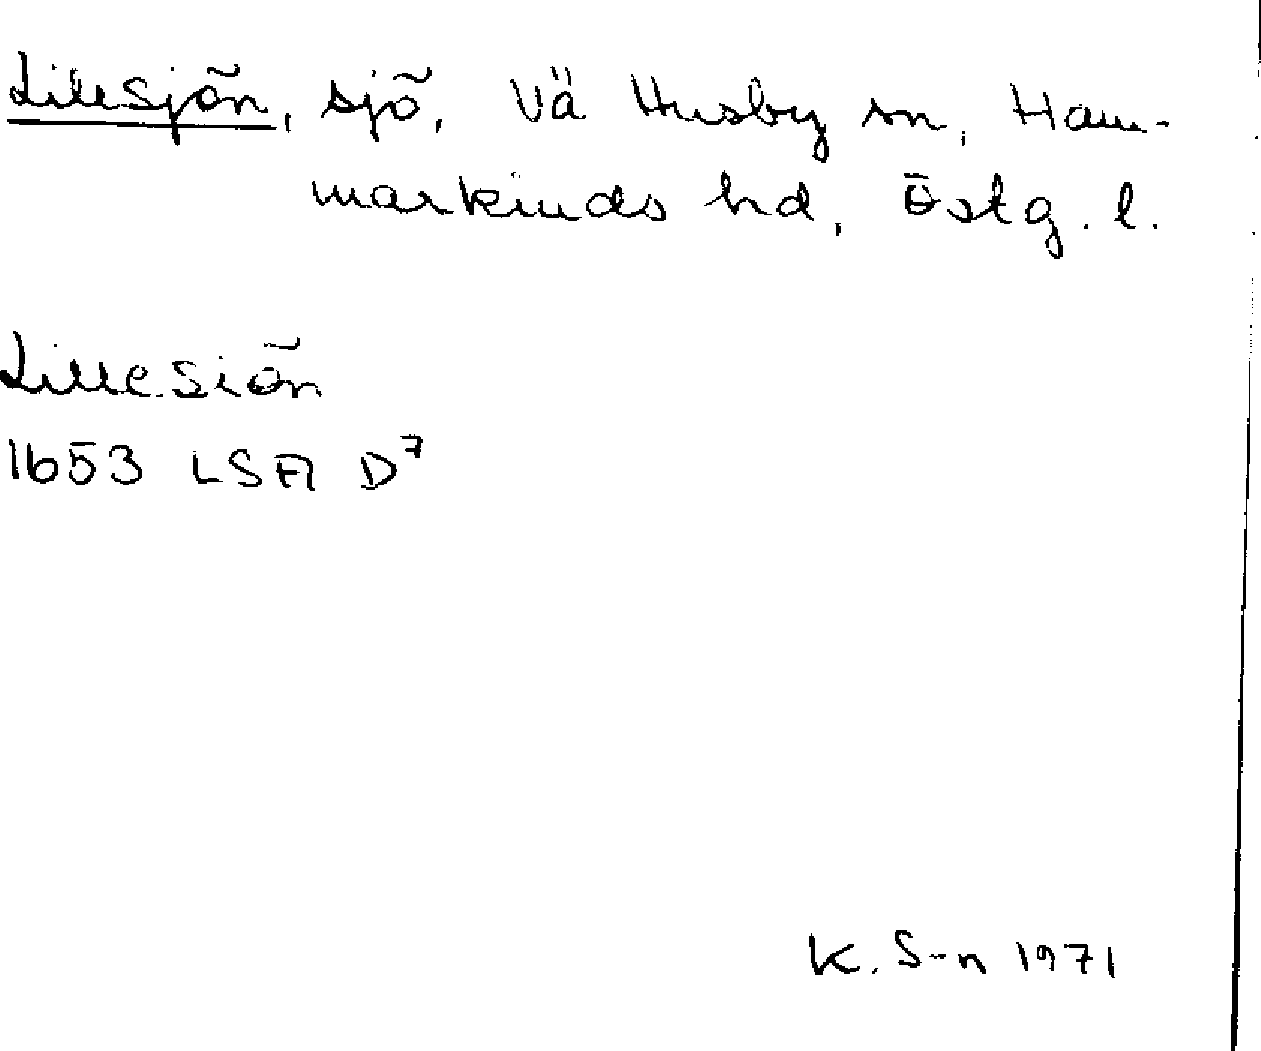 Lillesjön, sjö, Vä Husby sn, Ham-
markinds hd, Östg. l.
Lillesiön
1653 LSA D7
K. S-n 1971